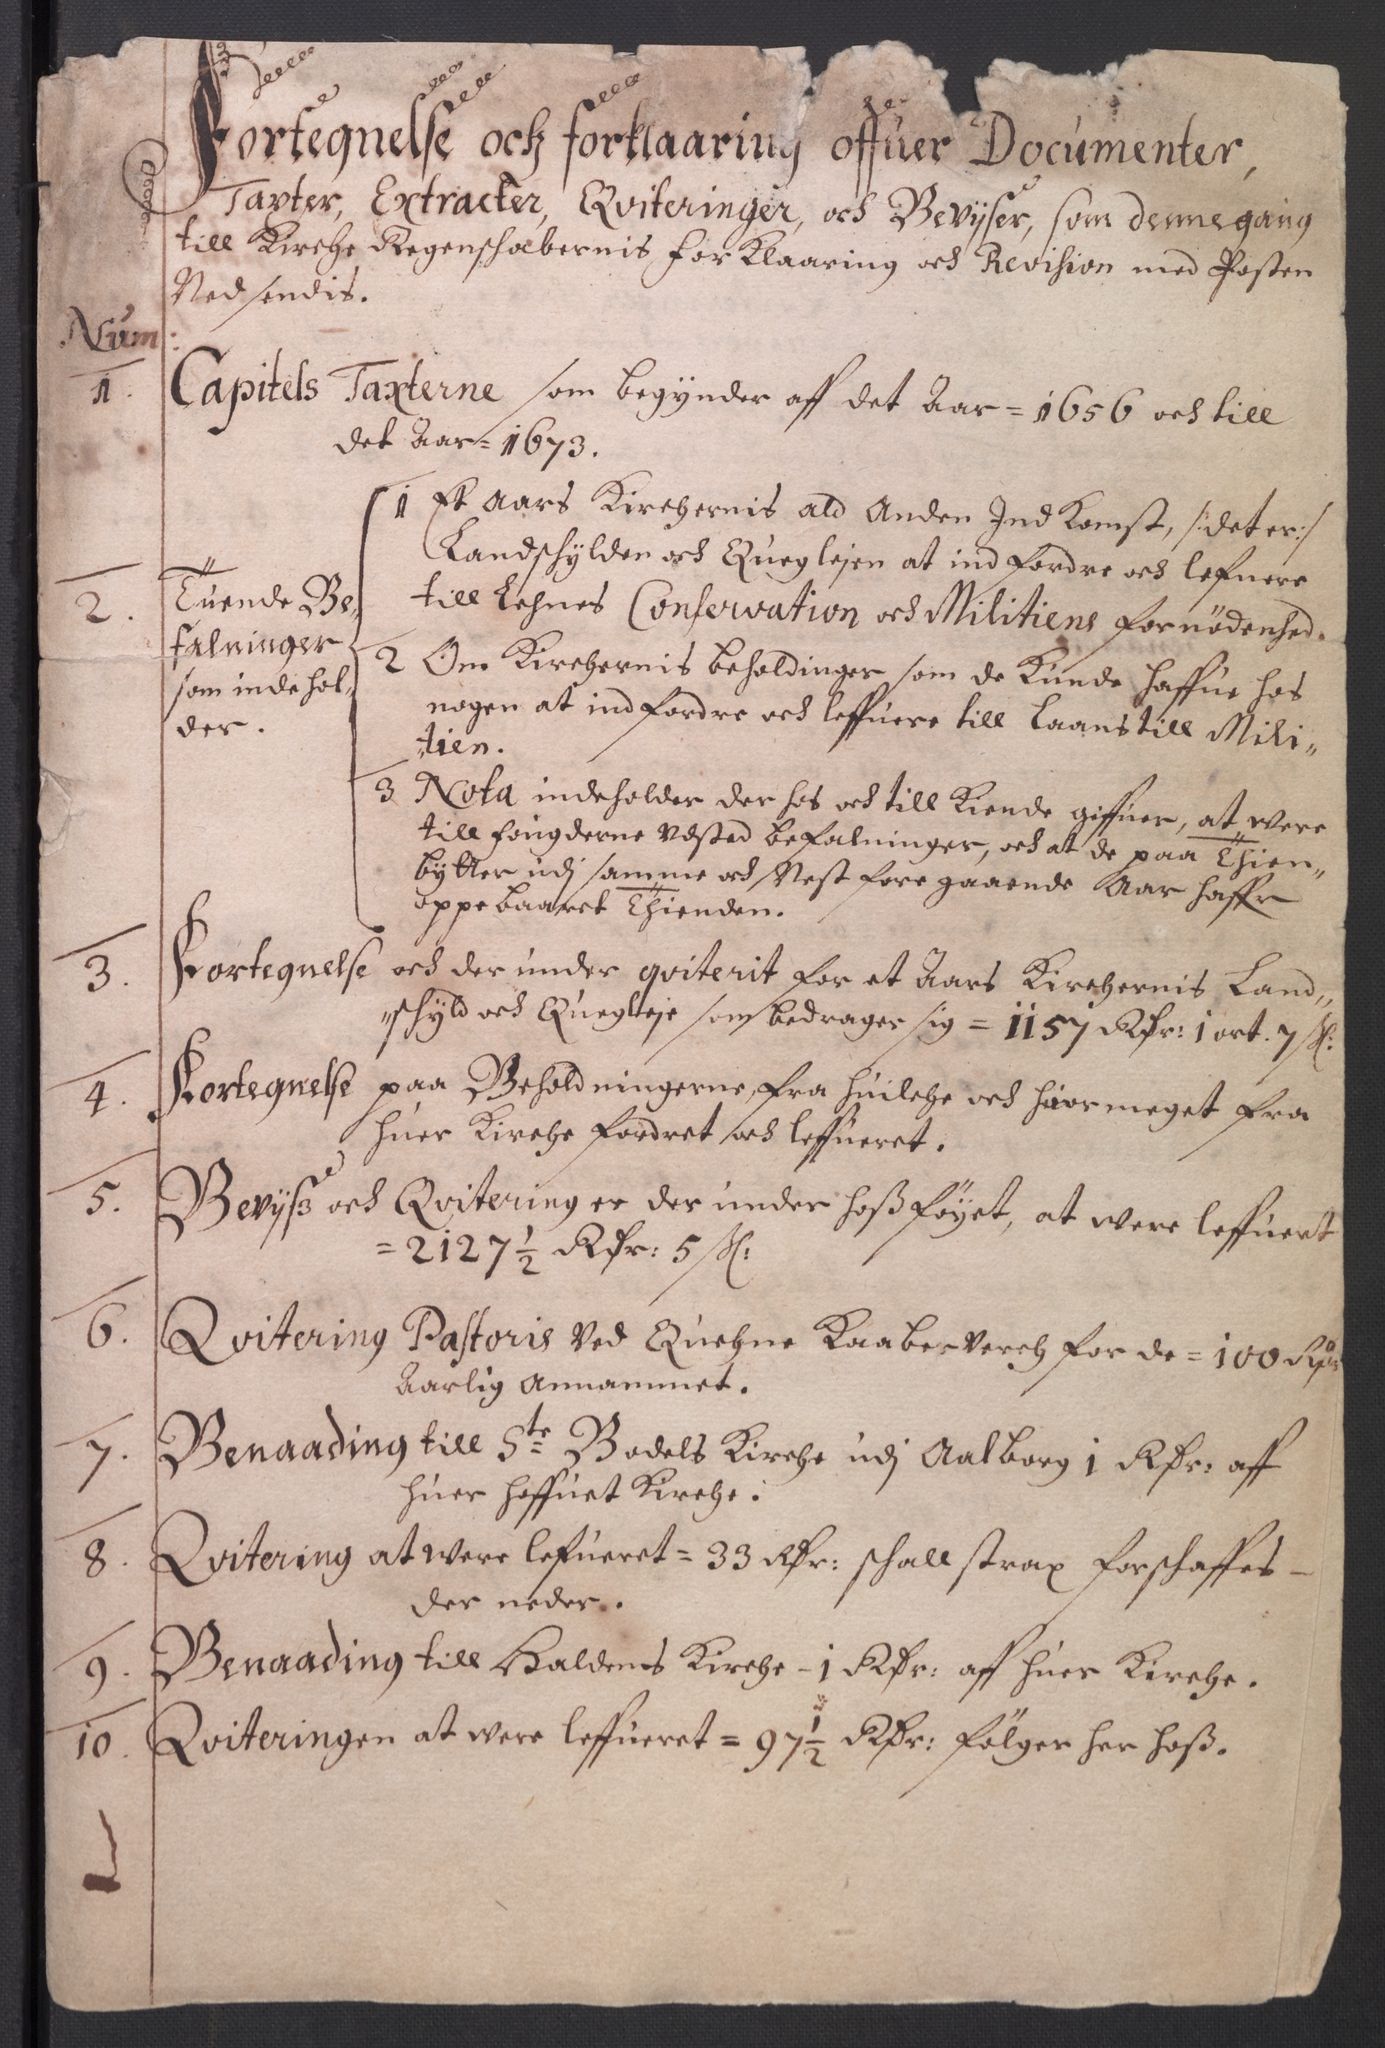 Fortegnelse och forklaaring offuer Documenter,
Taxter, Extracter, Qviteringer, och Bevÿser, som denne gang
till Kirche Regenschabernis for Klaaring och Revision med Posten
Ned sendis.
Num:
1. Capitels Taxterne som begÿnder aff det Aar = 1656 och till
det Aar = 1673.
2. Tuende Be,,
falninger
som inde hol,,
der.
1 Et Aars Kirchernis ald Anden Ind Komst, /: det er :/
Landschÿlden och Queglejen at ind fordre och lefuere
till Lehnes Conservation och Militiens fornödenhed.
2 Om Kirchernis beholdinger som de Kunde haffue hos
nogen at ind fordre och leffuere till Laans till Mili,,
,,tien.
3 Nota indeholder der hos och till Kiende giffuer, at were
till fougderne Vdsted befalninger, och at de paa Thien,,
bytter udj samme och Nest fore gaaende Aar haffr
oppebaaret Thienden.
3. Fortegnelse och der under qviterit for et Aars Kirchernis Land,,
,,schÿld och Queglleje som bedrager sig = 1157 Rdr: 1 ort. 7 ß:
4. Fortegnelse paa Beholdningerne, fra huilche och huor meget fra
huer Kirche fordret och leffueret.
5. Bevÿß och Qvitering er der under hoß föÿet, at were leffuert
= 2127 1/2 Rdr: 5 ß:
6. Qvitering Pastoris Ved Quehne Kaaberverch for de = 100 Rdr
Aarlig Annammet.
7. Benaading till Ste Bodels Kirche udj Aalborg 1 Rdr: aff
huer hoffuet Kirche.
8. Qvitering at were lefueret = 33 Rdr: schall strax forschaffes –
der neder.
9. Benaading till Haldens Kirche – 1 Rdr: aff huer Kirche.
10. Qviteringen at were leffueret = 97 1/2 Rdr: fölger her hoß.